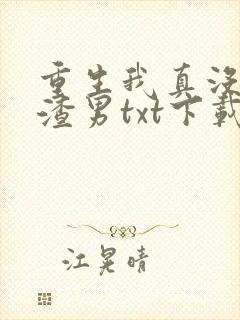 重生我真没
渣男txt下载
江晃晴